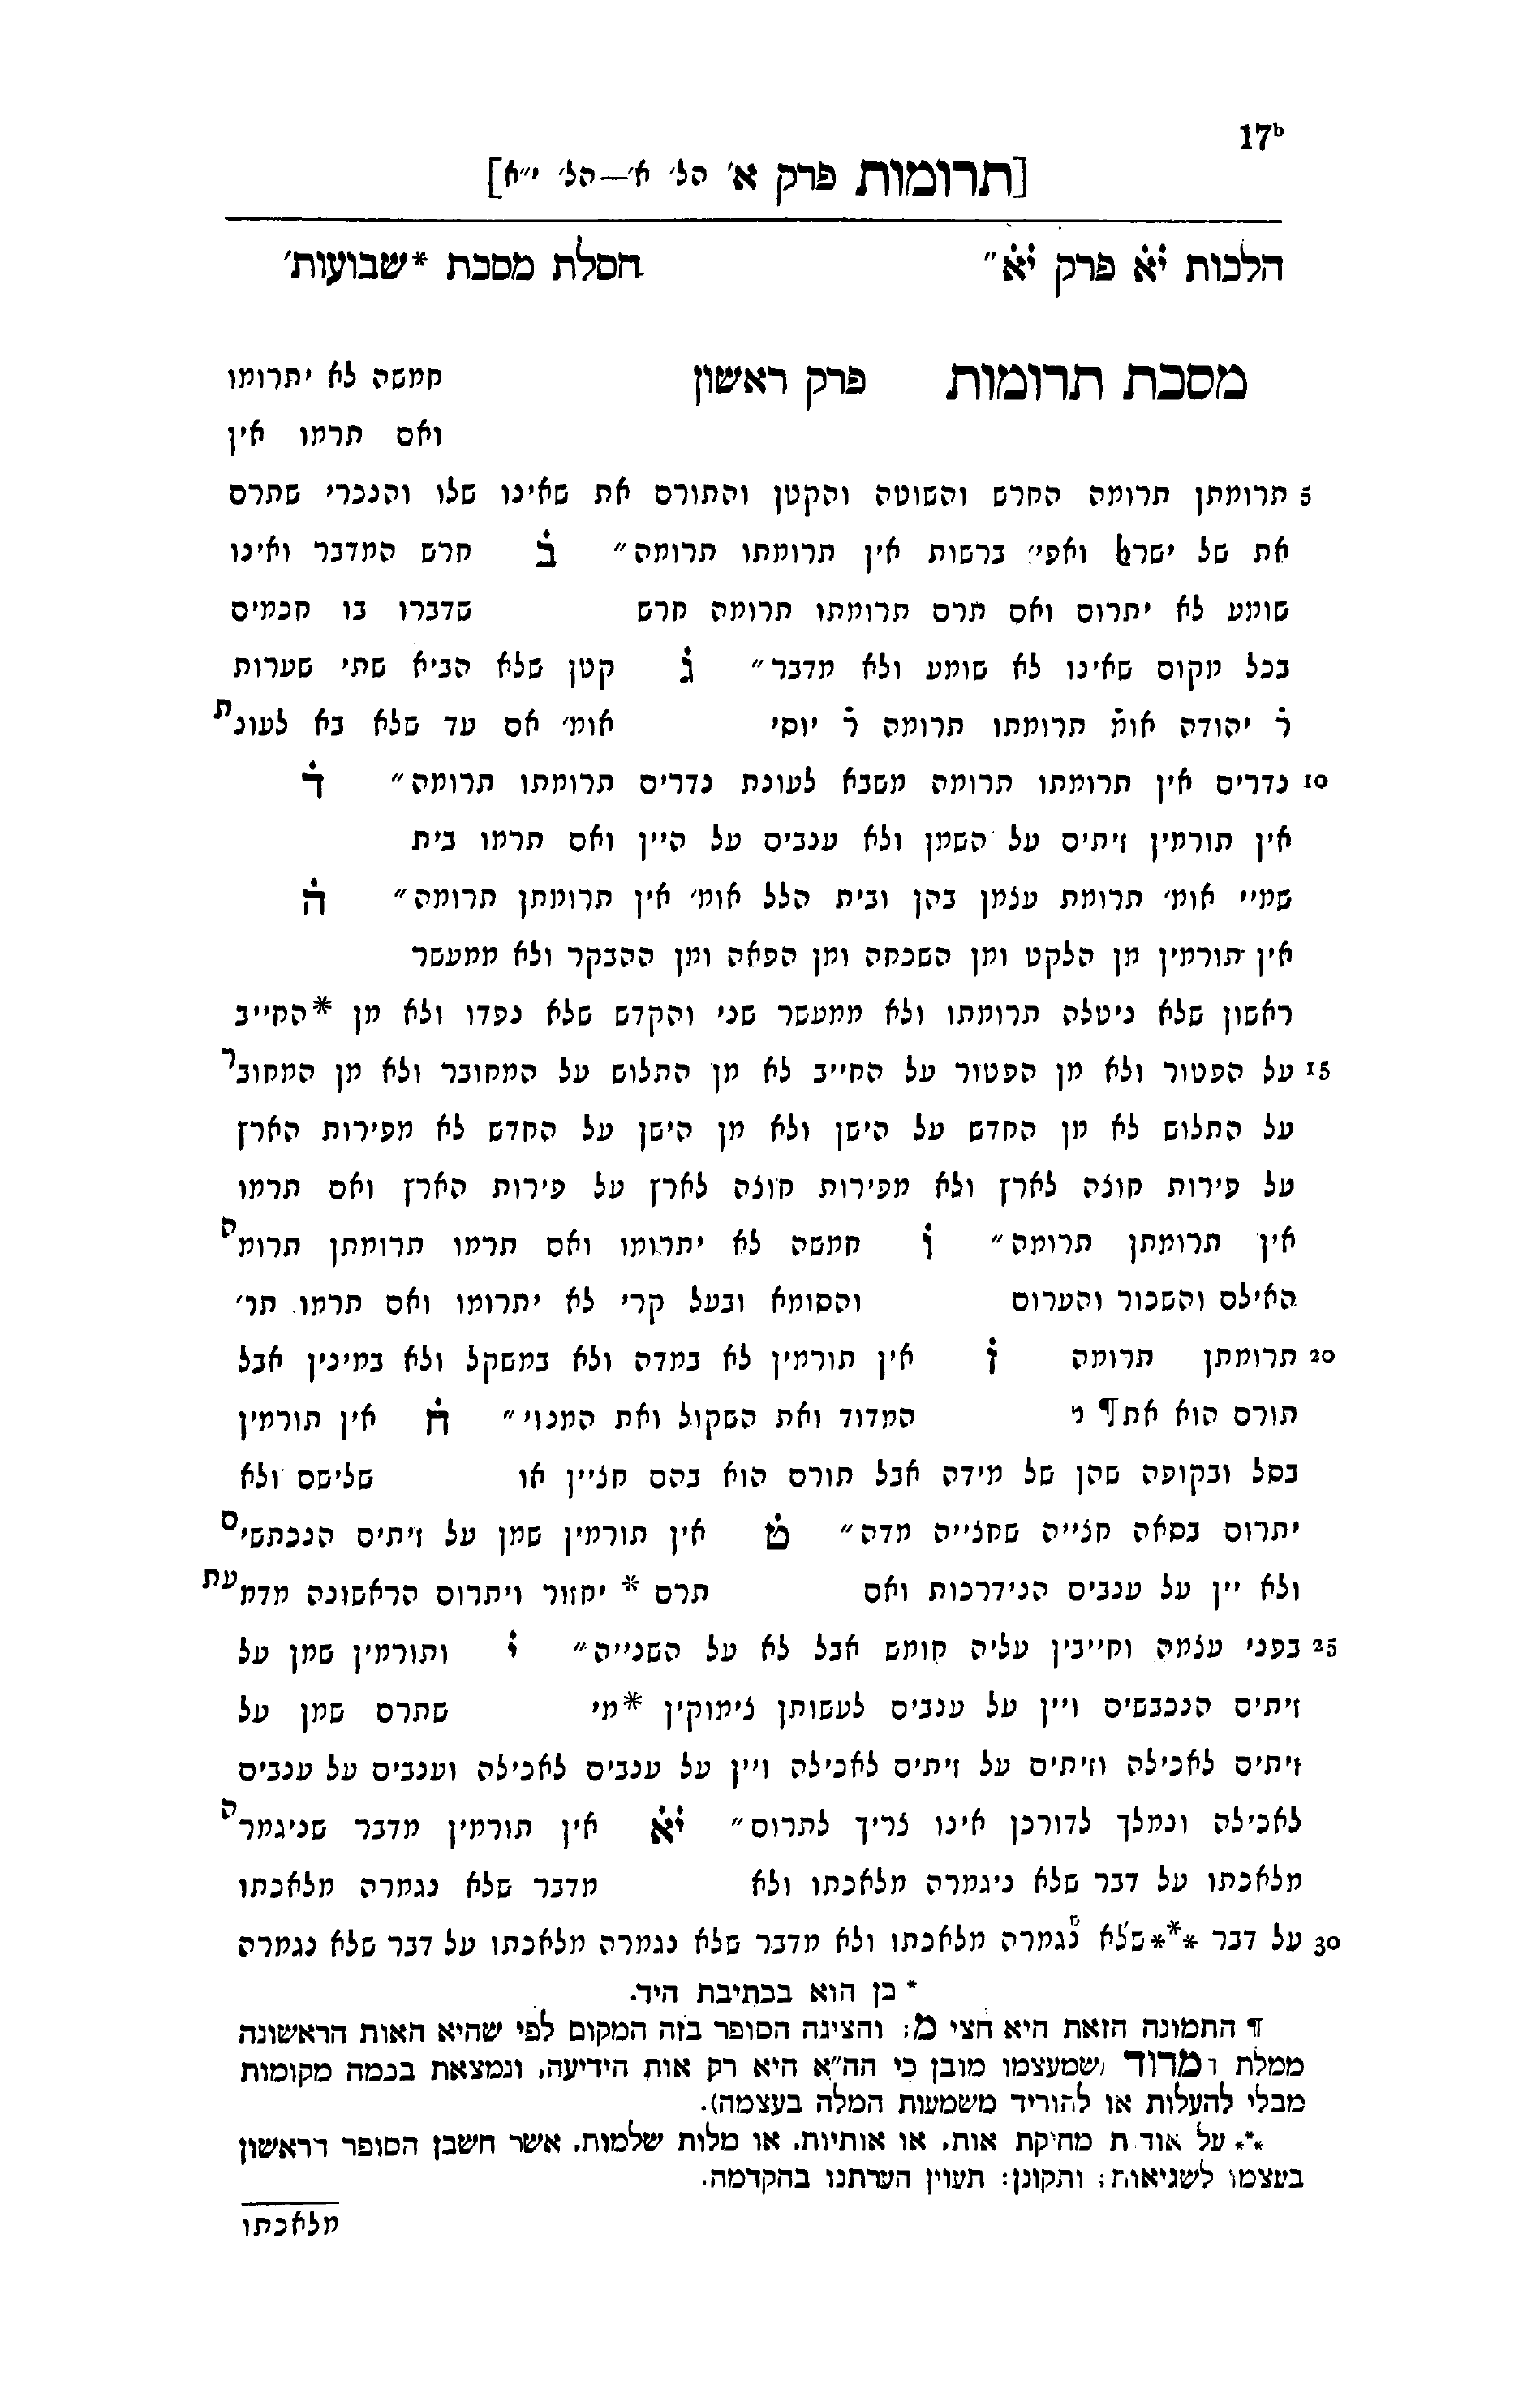 17ᵇ
[תרומות פרק א׳ הל׳ א׳—הל׳ י״א]
הלכות יא פרק יא״ חסלת מסכת *שבועות׳
מסכת תרומות פרק ראשון חמשה לא יתרומו
ואם תרמו אין
5 תרומתן תרומה החרש והשוטה והקטן והתורם את שאינו שלו והנכרי שתרם
את של ישראל ואפי׳ ברשות אין תרומתו תרומה״ ב חרש המדבר ואינו
שומע לא יתרום ואם תרם תרומתו תרומה חרש שדברו בו חכמים
בכל מקום שאינו לא שומע ולא מדבר״ ג קטן שלא הביא שתי שערות
ר יהודה אומ תרומתו תרומה ר יוסי אומ׳ אם עד שלא בא לעונת
10 נדרים אין תרומתו תרומה משבא לעונת נדרים תרומתו תרומה״ ד
אין תורמין זיתים על השמן ולא ענבים על היין ואם תרמו בית
שמיי אומ׳ תרומת עצמן בהן ובית הלל אומ׳ אין תרומתן תרומה״ ה
אין תורמין מן הלקט ומן השכחה ומן הפאה ומן ההבקר ולא ממעשר
ראשון שלא ניטלה תרומתו ולא ממעשר שני והקדש שלא נפדו ולא מן *החייב
15 על הפטור ולא מן הפטור על החייב לא מן התלוש על המחובר ולא מן המחובר
על התלוש לא מן החדש על הישן ולא מן הישן על החדש לא מפירות הארץ
על פירות חוצה לארץ ולא מפירות חוצה לארץ על פירות הארץ ואם תרמו
אין תרומתן תרומה״ ו חמשה לא יתרומו ואם תרמו תרומתן תרומה
האילם והשכור והערום והסומא ובעל קרי לא יתרומו ואם תרמו תר׳
20 תרומתן תרומה ז אין תורמין לא במדה ולא במשקל ולא במינין אבל
תורם הוא את¶ המדוד ואת השקול ואת המנוי״ ח אין תורמין
בסל ובקופה שהן של מידה אבל תורם הוא בהם חציין או שלישם ולא
יתרום בסאה חצייה שחצייה מדה״ ט אין תורמין שמן על זיתים הנכתשים
ולא יין על ענבים הנידרכות ואם תרם * יחזור ויתרום הראשונה מדמעת
25 בפני עצמה וחייבין עליה חומש אבל לא על השנייה״ י ותורמין שמן על
זיתים הנכבשים ויין על ענבים לעשותן צימוקין *מי שתרם שמן על
זיתים לאכילה וזיתים על זיתים לאכילה ויין על ענבים לאכילה וענבים על ענבים
לאכילה ונמלך לדורכן אינו צריך לתרום״ יא אין תורמין מדבר שניגמרה
מלאכתו על דבר שלא ניגמרה מלאכתו ולא מדבר שלא נגמרה מלאכתו
30 על דבר ***שלא נגמרה מלאכתו ולא מדבר שלא נגמרה מלאכתו על דבר שלא נגמרה
* כן הוא בכתיבת היד.
¶ התמונה הזאת היא חצי מ: והציגה הסופר בזה המקום לפי שהיא האות הראשונה
ממלת ומדוד (שמעצמו מובן כי הה״א היא רק אות הידיעה, ונמצאת בכמה מקומות
מבלי להעלות או להוריד משמעות המלה בעצמה).
*** על אודת מחיקת אות, או אותיות, או מלות שלמות, אשר חשבן הסופר הראשון
בעצמו לשגיאות; ותקונן: תעוין הערתנו בהקדמה.
מלאכתו